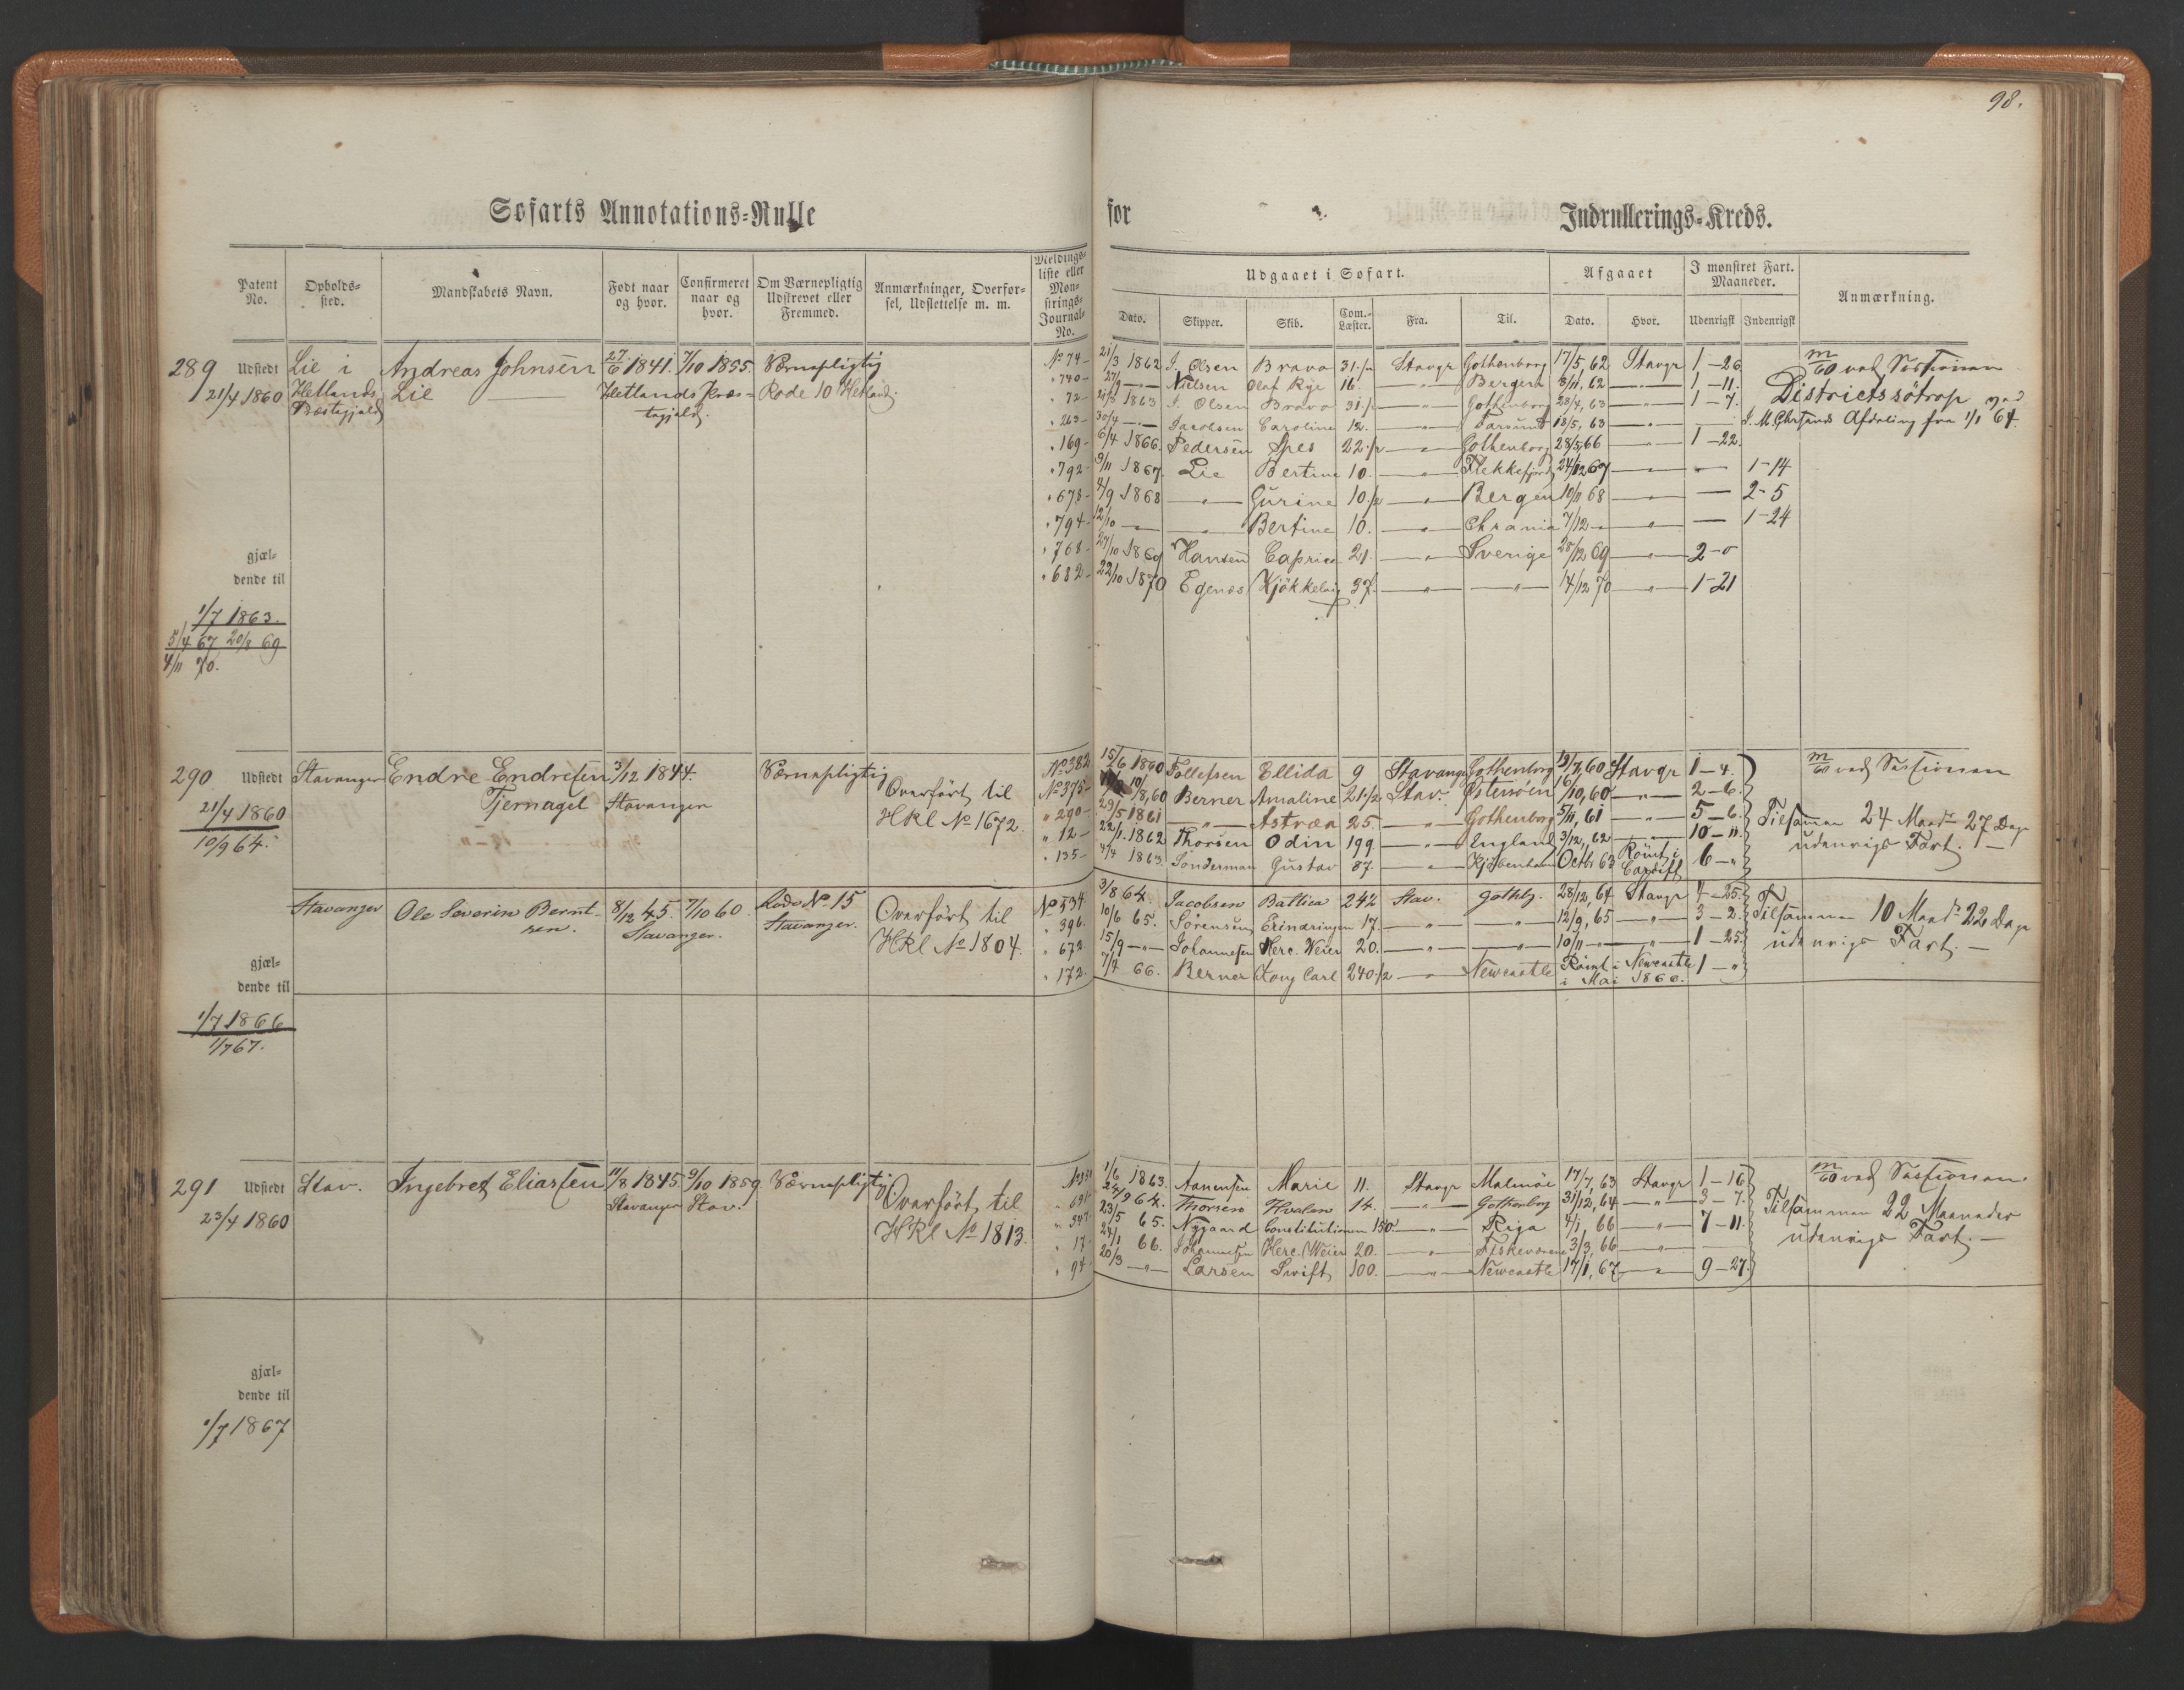 98.
Søfarts Annotations=Rulle for Indrullerings=Kreds.
Patent No.
Opholds=sted.
Mandskabets Navn.
Født naar og hvor.
Confirmeret naar og hvor.
Om Værnepligtig Udskrevet eller Fremmed.
Anmærkninger, Overførsel, Udslettelse m. m.
Meldings=liste eller Mønstrings=Journal=No.
Udgaaet i Søfart.
Dato. Skipper. Skib. Com.=Læster. Fra. Til.
Afgaaet
Dato. Hvor.
I mønstret Fart. Maaneder.
Udenrigsk Indenrigsk
Anmærkning.
289 Udstedt 21/4 1860
Lie i Hetlands Præstegjeld
Andreas Johnsen Lie
27/6 1841. Hetlands Præstegjeld.
7/10 1855.
Værnepligtig Rode 10 Hetland.
No 74 21/3 1862 J. Olsen Bravo 31 1/2 Stavgr Gothenborg 17/5, 62 Stavgr 1-26
" 740 27/9 — Nielsen Olaf Rye 16. — " — Bergen 8/11, 62 — " — 1-11.
" 72 21/3 1863 J. Olsen Bravo 31 1/2 — " — Gothenborg 28/4, 63 — " — 1-7.
" 263 30/4 — Jacobsen Caroline 12. — " — Farsund 18/5, 63 — " —
" 169 6/4 1866. Pedersen Spes 22 1/2 — " — Gothenborg 28/5 66 — " — 1-22.
" 792 9/11 1867. Lie Bertine 10. — " — Flekkefjord 24/12 67 — " — 1-14
" 678 4/9 1868 — " — Gurine 10 1/2 — " — Bergen 10/11 68 — " — 2-5
" 794 12/10 — " — Bertine 10. — " — Chrania 7/12 — " — 1-24
" 768 27/10 1869 Hansen Caprice 21. — " — Sverige 28/12 69 — " — 2-0
" 682 22/10 1870 Egenæs Kjøkkelvig 37. — " — — " — 14/12 70 — " — 1-21
m/60 ved Sessionen
Districtssøtrop ved
J. M. Chrsands Afdeling fra 1/1 64.
gjæl=
dende til
1/7 1863.
5/4 67 20/8 69
4/11 70.
290 Udstedt 21/4 1860
10/9 64.
Stavanger
Endre Endresen Tjernagel
3/12 1844. Stavanger
Værnepligtig
Overført til HRl No 1672.
No 382 15/6 1860 Tollefsen Ellida 9 Stavanger Gothenborg 19/7, 60 Stavgr 1-4.
No 375 10/8, 60 Berner Amaline 21 1/2 Stav. Østersøen 6/10, 60 — " — 2-6.
" 290 29/5 1861 — " — Astræa 25. — " — Gothenborg 5/11, 61 — " — 5-6.
" 12 22/1. 1862 Thorsen Odin 199. — " — England 3/12, 62 — " — 10-11.
" 135 4/4 1863. Sonderman Gustav 87. — " — Kjøbenhavn Octbr 63 Rømt i Cardiff 6-"
m/60 ved Sessionen
Tilsammen 24 Maadr 27 Dage
udenrigs Fart. —
Stavanger
Ole Severin Berntsen.
8/12 45. Stavanger.
7/10 60.
Rode No 15 Stavanger.
Overført til HRl No 1804.
No 534 3/8 64. Jacobsen Baltica 242 Stav. Gothbg. 28/12, 64 Stavgr 4-25.
" 396. 10/6 65. Sørensen Erindringen 17. — " — — " — 12/9, 65 — " — 3-2.
" 672 15/9 — " — Johannesen Herc. Weier 20. — " — — " — 10/11 — " — 1-25.
" 172. 7/4 66. Berner Kong Carl 240 1/2 — " — Newcastle Rømt i Newcastle i Mai 1866. 1-"
Tilsammen 10 Maadr 22 Dage
udenrigs Fart. —
gjæl=
dende til
1/7 1866
1/7 67.
291 Udstedt 23/4 1860
Stav.
Ingebret Eliassen
11/8 1845 Stavanger
9/10 1859 Stav.
Værnepligtig
Overført til HRl No 1813.
1/6 1863. Aanensen Marie 11. Stavgr Malmöe 17/7, 63 Stavgr 1-16
" 691 24/9 64. Thorsen Hvalen 14. — " — Gothenborg 31/12, 64 — " — 3-7.
" 347 23/5 65. Nygaard Constitutionen 150. — " — Riga 4/1, 66 — " — 7-11.
" 17 24/1 66. Johannesen Herc. Weier 20. — " — Fiskeværene 3/3, 66 — " —
" 94 20/3 — " — Larsen Swift 100. — " — Newcastle 17/1, 67 — " — 9-27.
m/60 ved Sessionen
Tilsammen 22 Maaneder
udenrigs Fart. —
gjæl=
dende til
1/7 1867